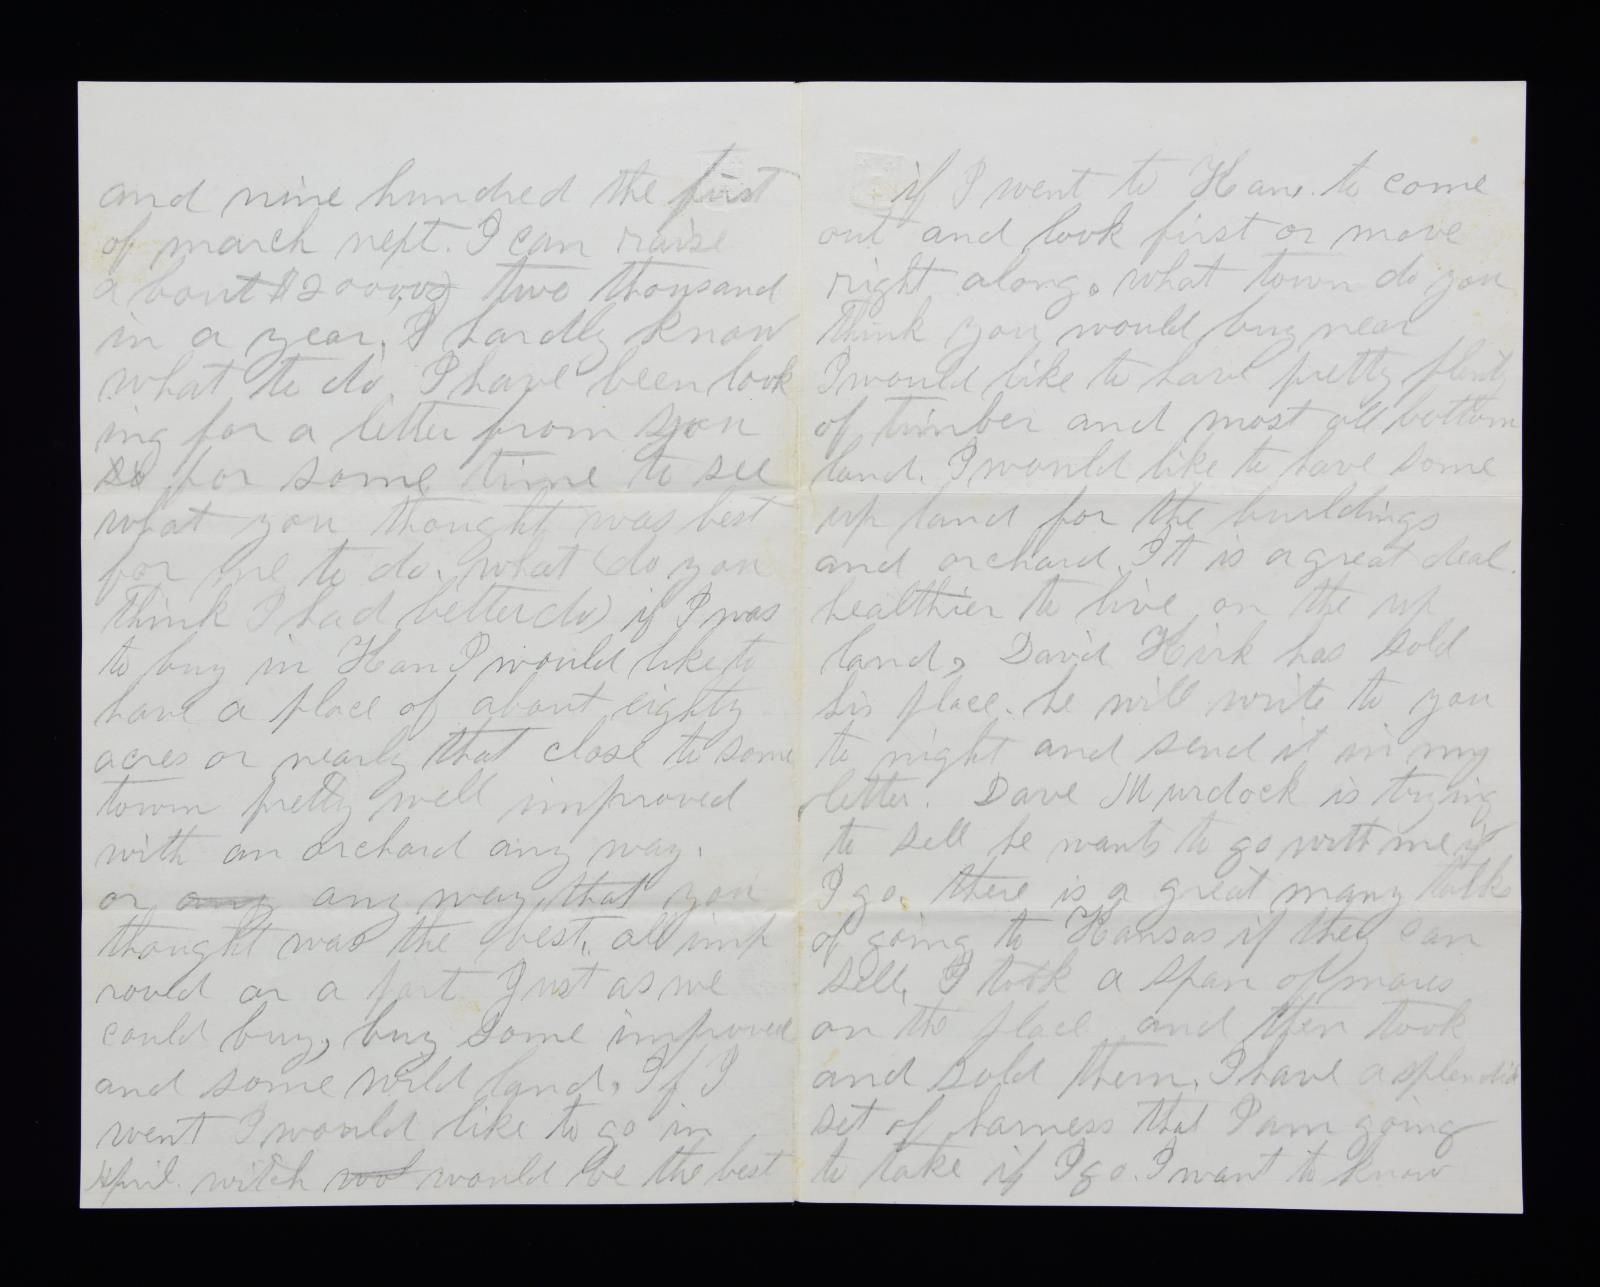 and nine hundred the first
of march next. I can raise
about $2000,00 two thousand
in a year, I hardly know
what to do. I have been look
ing for a letter from you
so for some time to see
what you thought was best
for me to do. what (do you
think I had better do) if I was
to buy in Kan I would like to
have a place of about eighty
acres or nearly that close to some
town pretty well improved
with an orchard any way.
or any any way that you
thought was the best, all imp
roved or a part Just as we
could buy, buy some improved
and some wild land, If I
went I would like to go in
April. witch would be the best
if I went to Kan. to come
out and look first or move
right along. what town do you
think you would buy near
I would like to have pretty plenty
of timber and most all bottom
land. I would like to have some
up land for the buildings
and orchard. It is a great deal
healthier to live on the up
land, David Kirk has sold
his place. he will write to you
to night and send it in my
letter. Dave Murdock is trying
to sell he wants to go with me if
I go. there is a great many talks
of going to Kansas if they can
sell, I took a span of mares
on the place and then took
and sold them, I have a splendid
set of harness that I am going
to take if I go. I want to know